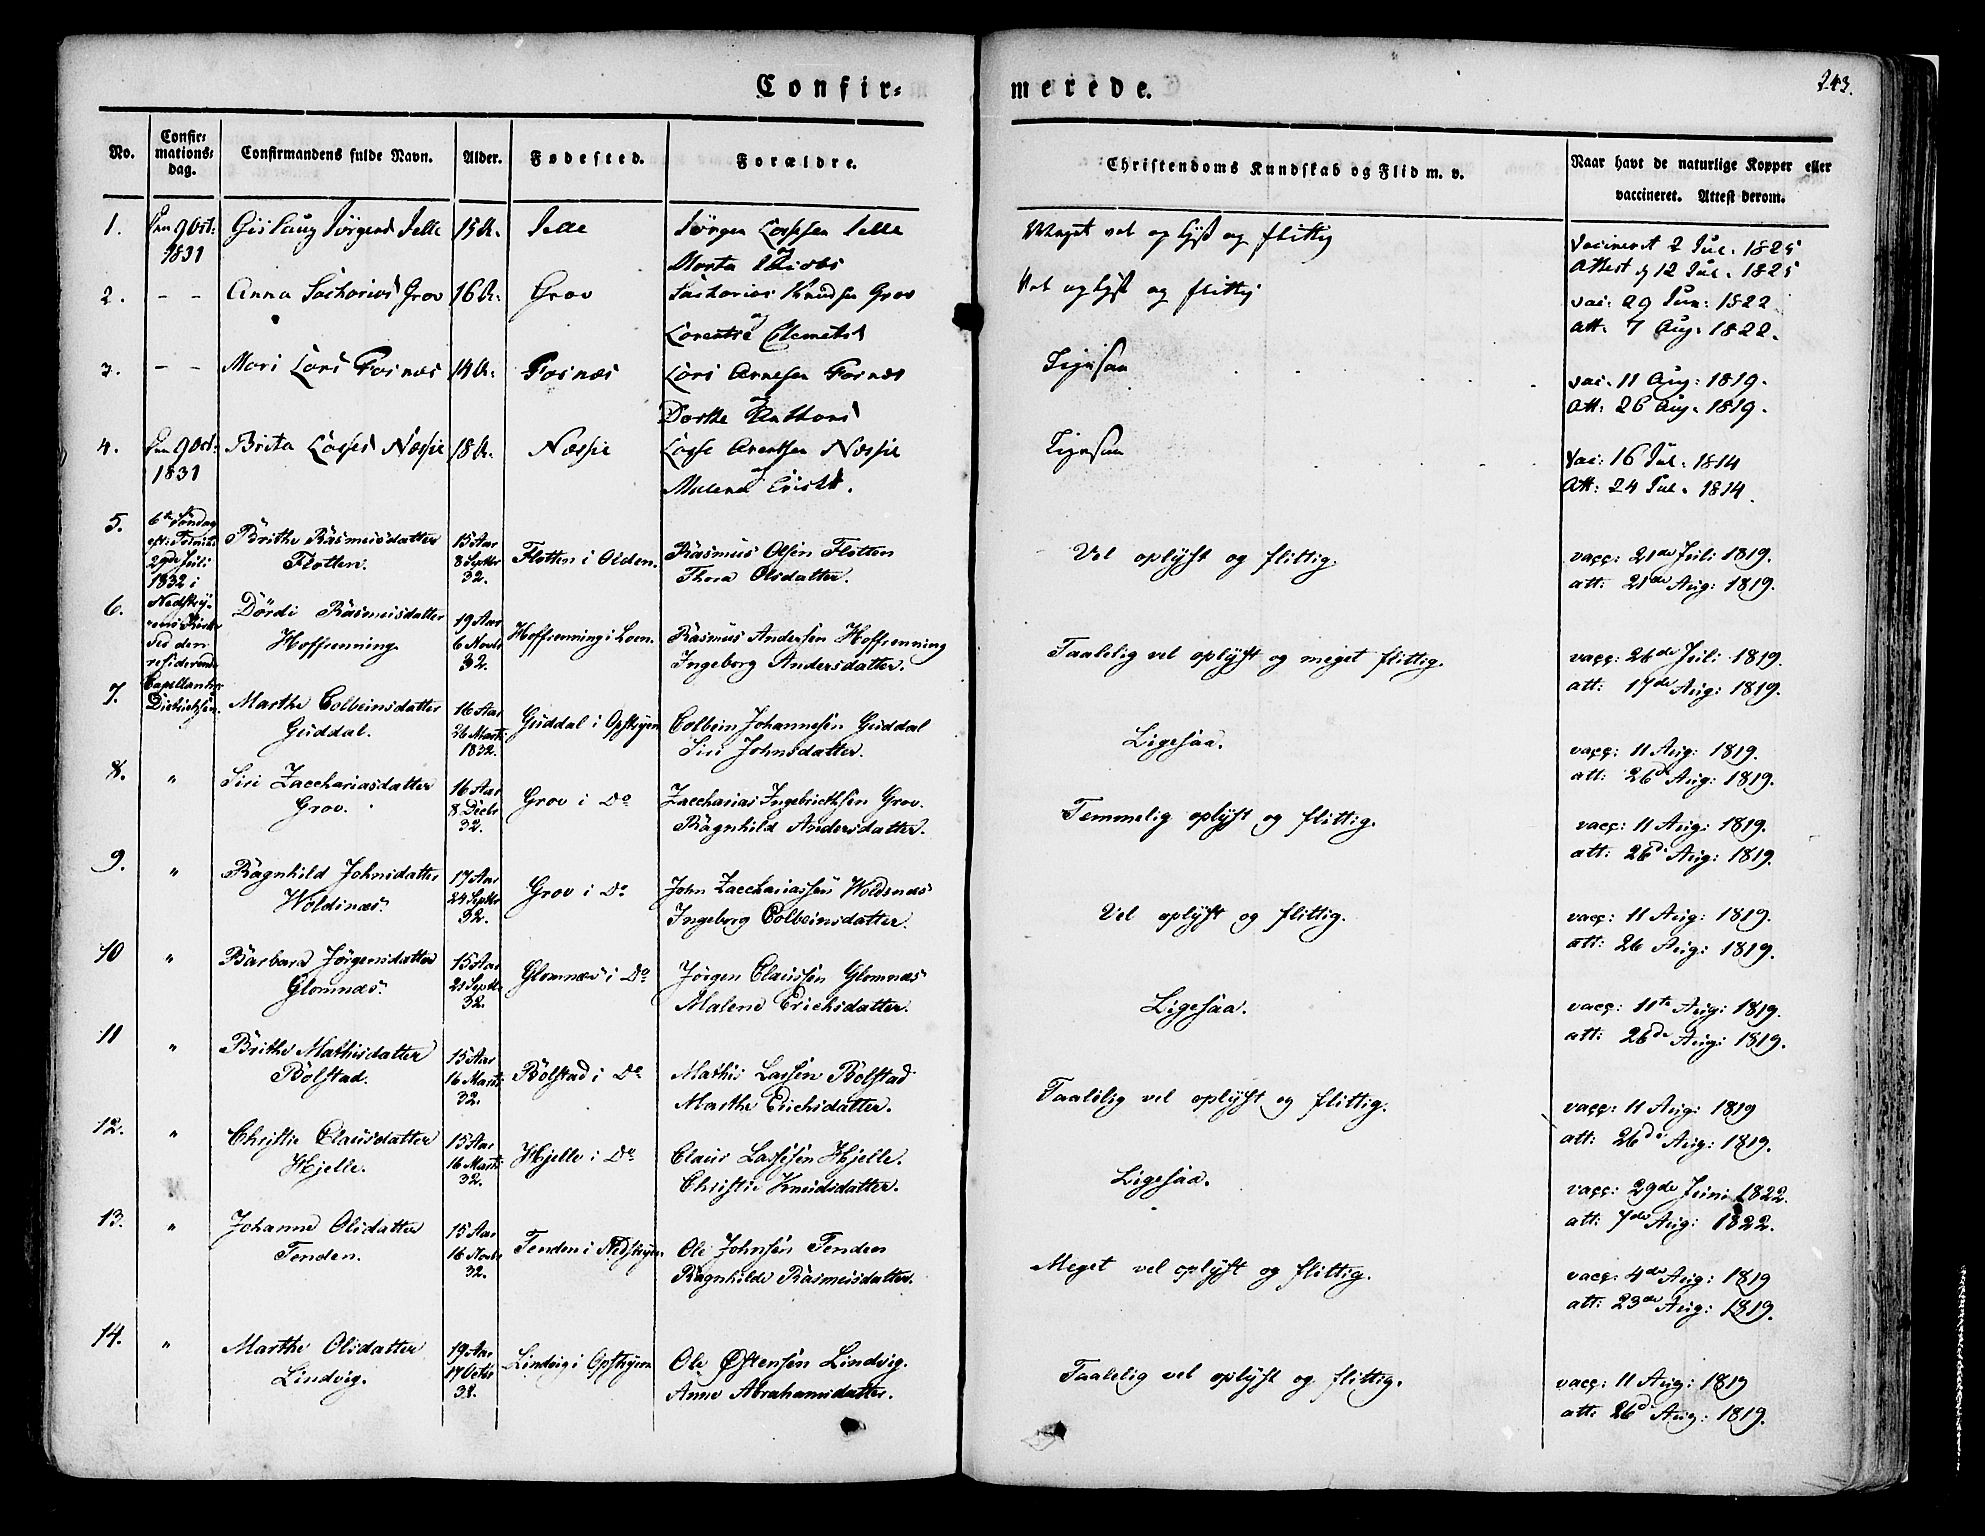 Confir=
merede.
243.
No.
Confir=
mations=
dag.
Confirmandens fulde Navn.
Alder.
Fødested.
Forældre.
Christendoms Kundskab og Flid m. v.
Naar havt de naturlige Kopper eller
vaccineret. Attest derom.
1.
1831
15 A.
Meget vel oplyst og flittig
Vacineret 2 Jul. 1825
Attest d 12 Jul. 1825
2.
- -
Anna Sacharies Grov
16 A.
Grov
Sacharies Knudsen Grov
og
Vel oplyst og flittig
vac: 29 Jun: 1822
att. 7 Aug. 1822.
3.
- -
14 A.
Lars Arnesen
og
Ligesaa
vac. 11 Aug: 1819.
Att: 26 Aug. 1819.
4.
1831
Brita Lasses Næssie
18 A.
Næssie
Lasse Arentsen Næssie
og
Malena
Ligesaa
Vac: 16 Jul. 1814
Att: 24 Jul. 1814.
5.
6te Søndag
eft: Trinit:
29de Juli
1832 i
Brithe Rasmusdatter
Flotten.
15 Aar
8 Septbr
32.
Flotten i Olden.
Rasmus Olsen Flotten
Thora Olsdatter.
Vel oplyst og flittig.
vacc: 21de Juli 1819.
att: 21de Aug: 1819.
6.
Nedstry=
ens Kirke
ved den
residerende
Capellan Hr.
Didrichsen.
Dørdi Rasmusdatter
Hoffrenning.
19 Aar
6 Novbr
32.
Hoffrenning i Loen.
Rasmus Andersen Hoffrenning
Ingeborg Andersdatter.
Taalelig vel oplyst og meget flittig.
vacc: 26de Juli 1819.
att: 17de Aug: 1819.
7.
Marthe Colbeinsdatter
Guddal.
16 Aar
26 Marts
1832.
Guddal i Opstryen
Colbein Johannesen Guddal
Siri Johnsdatter.
Ligesaa.
vacc: 11 Aug: 1819.
att: 26d Aug: 1819.
8.
"
Siri Zacchariasdatter
Grov.
16 Aar
8 Decbr
32.
Grov i Do
Zaccharias Ingebricthsen Grov.
Ragnhild Andersdatter.
Temmelig oplyst og flittig.
vacc: 11 Aug: 1819.
att: 26d: Aug: 1819.
9.
"
Ragnhild Johnsdatter
Woldsnæs.
17 Aar
24 Septbr
32.
Grov i Do
John Zacchariassen Woldsnæs
Ingeborg Colbeinsdatter.
Vel oplyst og flittig.
vacc: 11 Aug: 1819.
att: 26 Aug: 1819.
10
"
Barbara Jørgensdatter
Glomnæs.
15 Aar
21 Septbr
32.
Glomnæs i Do
Jørgen Claussen Glomnæs
Malene Erichsdatter.
Ligesaa.
vacc: 11te Aug: 1819.
att: 26de Aug: 1819.
11
"
Brithe Mathisdatter
Bolstad.
15 Aar
16 Marts
32.
Bolstad i Do
Mathis Lassen Bolstad
Marthe Erichsdatter.
Taalelig vel oplyst og flittig.
vacc: 11 Aug: 1819
att: 26de Aug: 1819.
12.
"
Christie Clausdatter
Hjelle.
15 Aar
16 Marts
32.
Hjelle i Do
Claus Lassesen Hjelle.
Christie Knudsdatter.
Ligesaa.
vacc: 29de Juni 1822.
att: 7de Aug: 1822.
13.
"
Johanne Olsdatter
Tenden.
15 Aar
16 Novbr
32.
Tenden i Nedstryen
Ole Johnsen Tenden
Ragnhilde Rasmusdatter.
Meget vel oplyst og flittig.
vacc: 4de Aug: 1819
att: 23de Aug: 1819.
14.
"
Marthe Olsdatter
Lindvig.
19 Aar
17 Octbr
32.
Lindvig i Opstryen
Ole Østensen Lindvig.
Anne Abrahamsdatter.
Taalelig vel oplyst og flittig.
vacc: 11 Aug: 1819
att: 26d Aug: 1819.